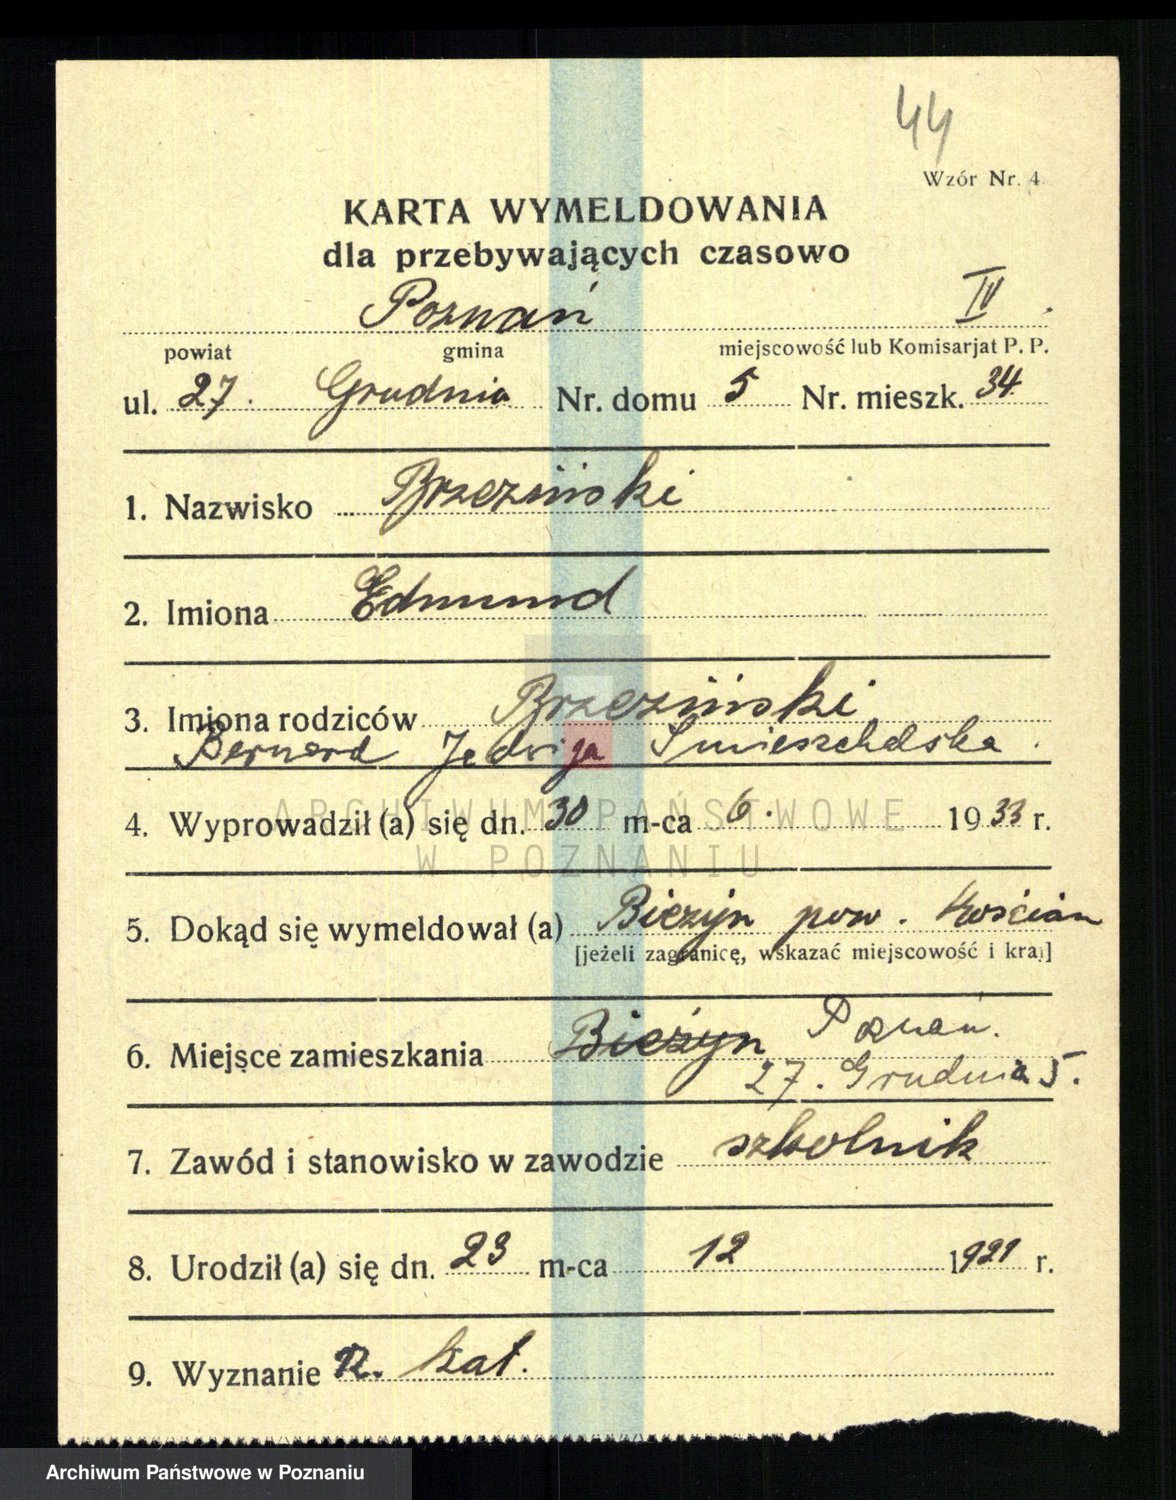 44
Wzór Nr. 4
KARTA WYMELDOWANIA
dla przebywających czasowo
Poznań IV
powiat gmina miejscowość lub Komisarjat P. P.
ul. 27. Grudnia Nr. domu 5 Nr. mieszk. 34
1. Nazwisko Brzeziński
2. Imiona Edmund
3. Imiona rodziców Brzeziński
Bernard Jadwiga
ARCHIWUM PAŃSTWOWE
W POZNANIU
4. Wyprowadził (a) się dn. 30 m-ca 6. 1933 r.
5. Dokąd się wymeldował (a) Bieżyn pow. Kościan
[jeżeli zagranicę, wskazać miejscowość i kraj]
6. Miejsce zamieszkania Bieżyn Poznań.
27. Grudnia 5.
7. Zawód i stanowisko w zawodzie szkolnik
8. Urodził (a) się dn. 23 m-ca 12 1921 r.
9. Wyznanie R. kat.
Archiwum Państwowe w Poznaniu